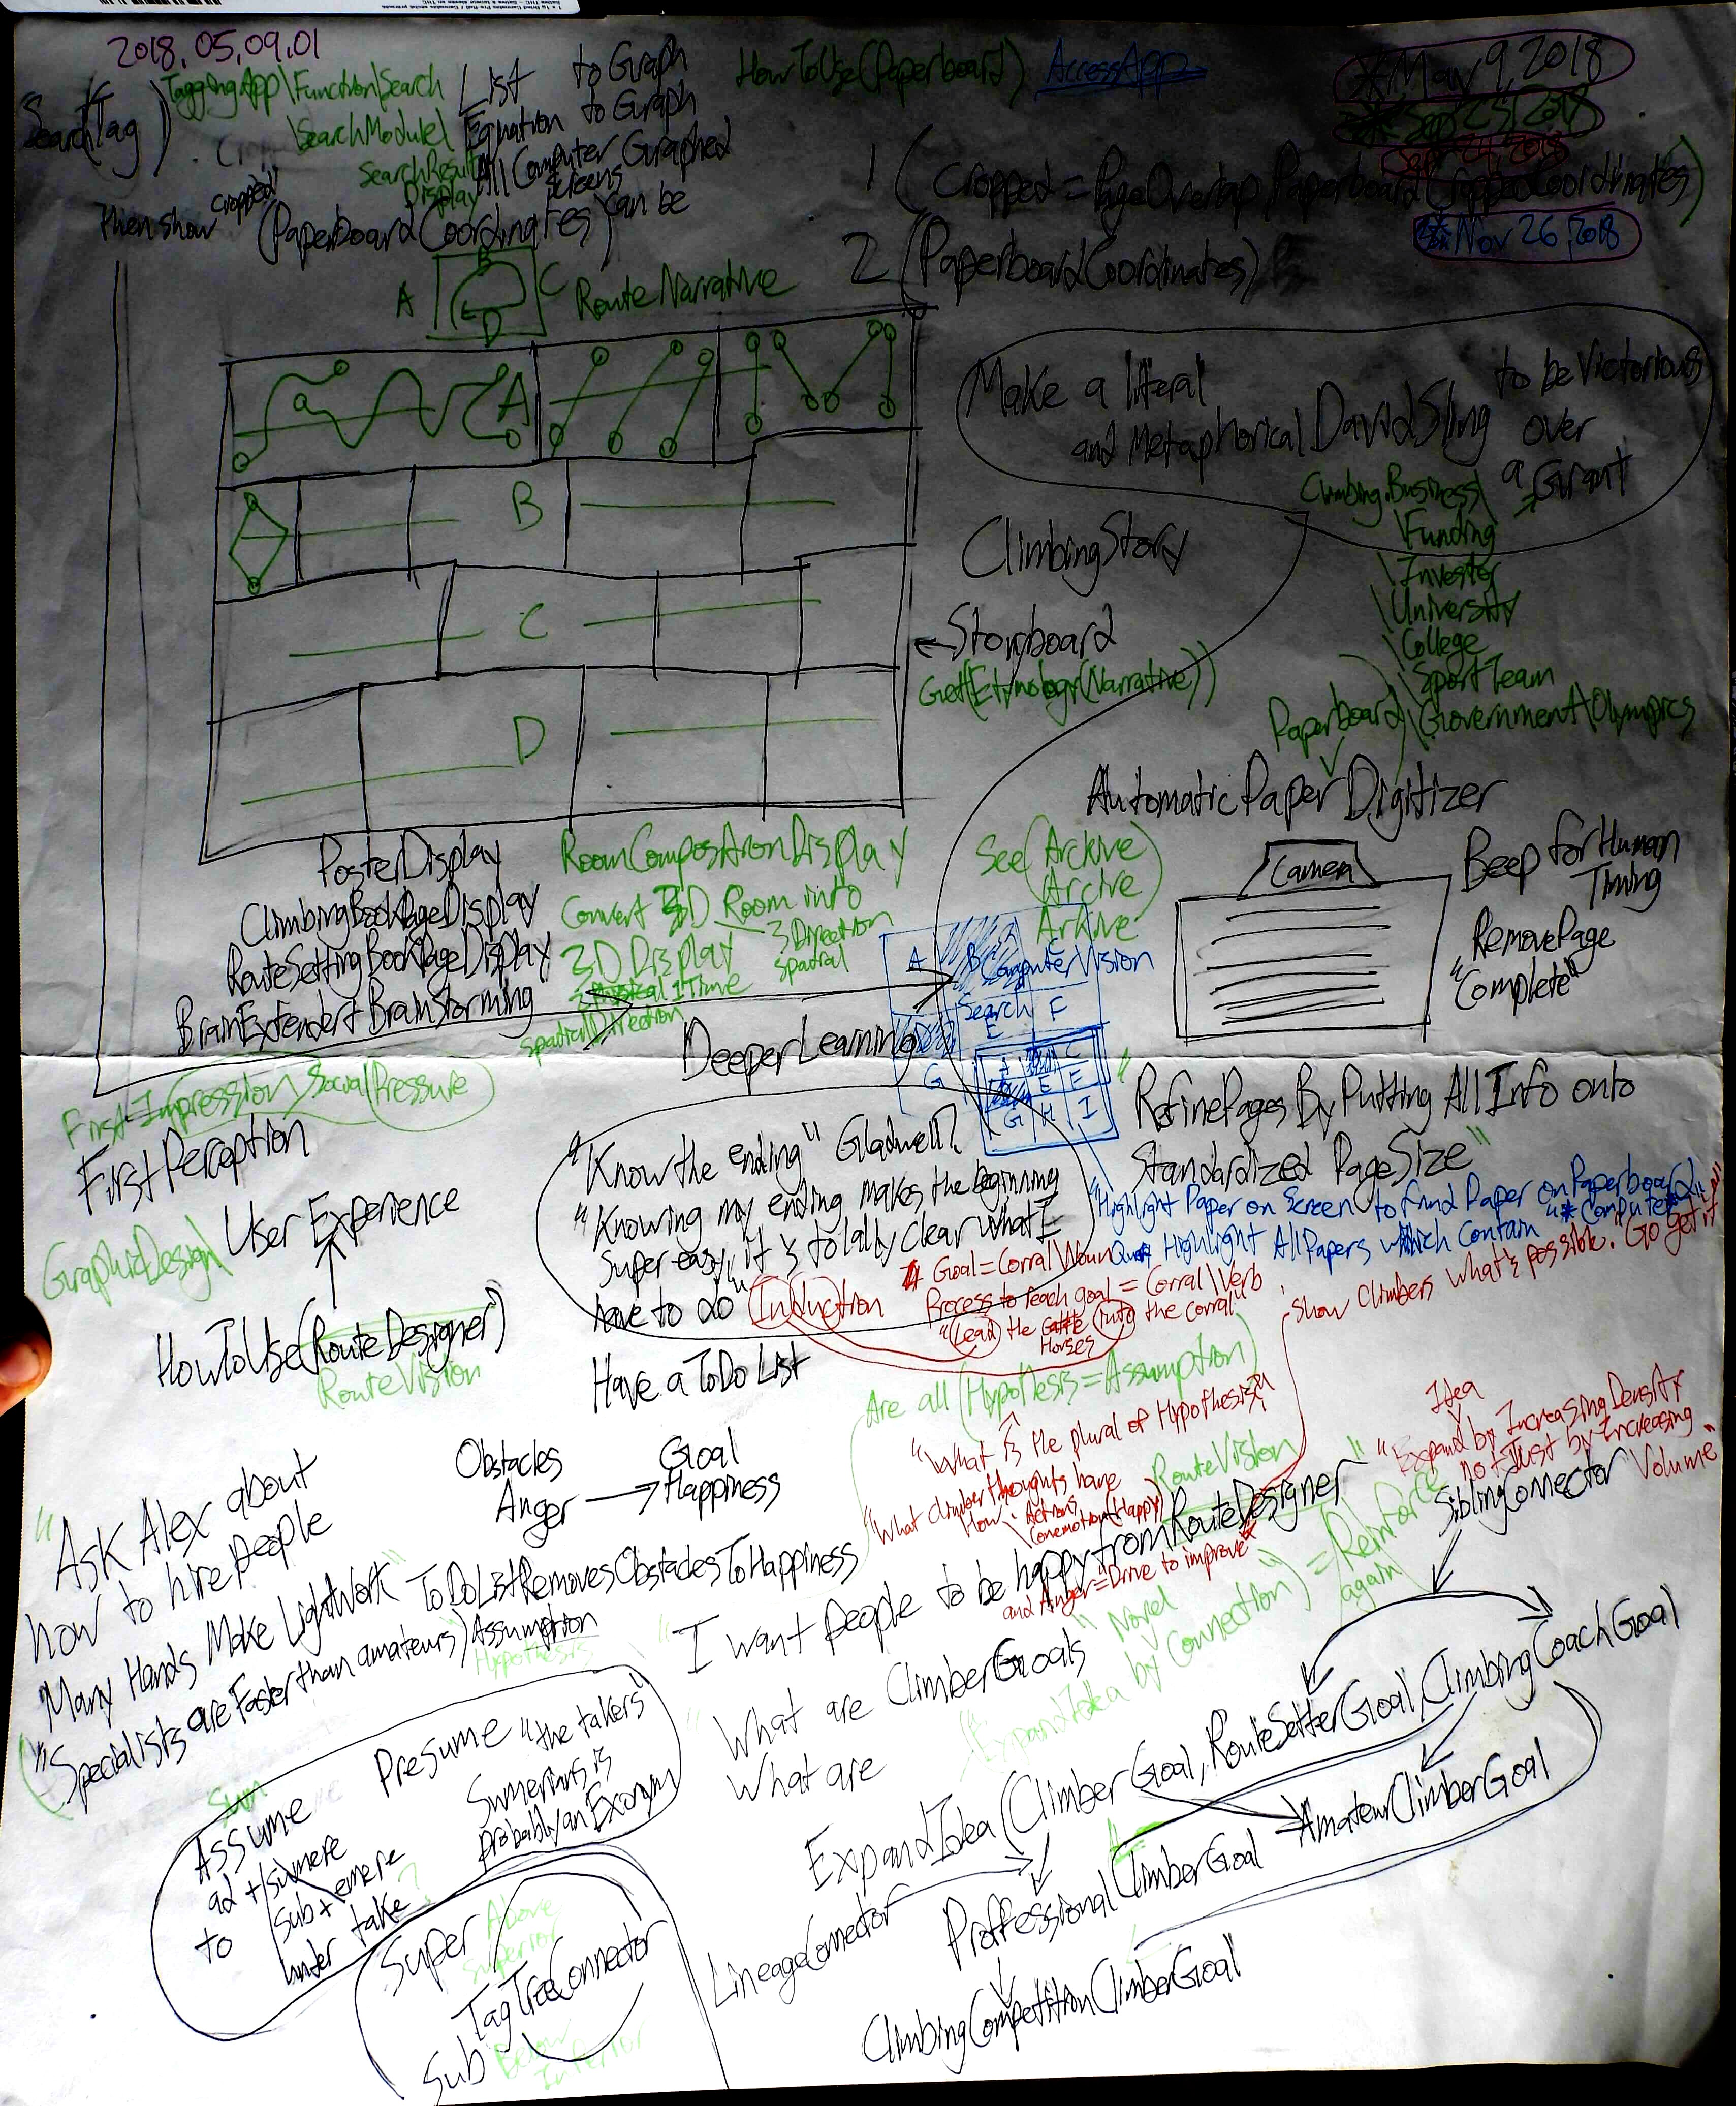 2018.05.09.01
Search(Tag)
TaggingApp\Function\Search
\SearchModule\
SearchResult
Display
List to Graph
Equation to Graph
All Computer Graphed
Screens
can be
Then show "cropped"
(PaperboardCoordinates)
HowToUse(Paperboard)
AccessApp
*May 9, 2018
Sep 25, 2018
Sept 24, 2018
Nov 26, 2018
1 (Cropped = PageOverlap, PaperboardCroppedCoordinates)
2 (PaperboardCoordinates)
A B C D
RouteNarrative
A
B
C
D
Make a literal
and Metaphorical DavidSling
to be Victorious
over
a Giant
ClimbingStory
Storyboard
Get(Etymology(Narrative))
Climbing.Business\
\Funding
\Investor
\University
\College
\SportTeam
\Government\Olympics
Paperboard
Automatic Paper Digitizer
Camera
Beep for Human
Timing
RemovePage
"Complete"
See(Archive
Arcive
Arkive)
PosterDisplay
ClimbingBookPageDisplay
RouteSettingBookPageDisplay
BrainExtender+BrainStorming"
RoomCompositionDisplay
Convert 3D Room into
3D Display
3 Direction
Spatial
Physical 1 Time
Spatial Direction
DeeperLearning
A B Computer Vision
Search F
E
G
A C
E E
G H I
"RefinePages By Putting All Info onto
Standardized PageSize"
"Highlight Paper on Screen to find Paper on Paperboard"
Highlight All Papers which Contain "*Computer*"
First Impression, Social Pressure
First Perception
GraphicDesign\
User Experience
HowToUse(RouteDesigner)
RouteVision
"Know the ending" Gladwell?
"Knowing my ending makes the beginning
Super easy, it's totally clear what I
have to do"
Induction
Goal = Corral\Noun
Process to reach goal = Corral\Verb
"Lead the Cattle into the corral"
Horses
Show Climbers what's possible. "Go get it"
Have a ToDo List
Are all (Hypothesis = Assumption)
"What is the plural of Hypothesis?"
Obstacles Goal
Anger → Happiness
"What climber thoughts have
How. Actions
(onemotion(Happy)
and Anger = Drive to improve"
RouteVision
Idea
"Expand by Increasing Density
not Just by Increasing
Volume"
SiblingConnector
"Ask Alex about
how to hire people
"Many Hands Make LightWork"
ToDoListRemovesObstaclesToHappiness
("Specialists are Faster than amateurs) Assumption
Hypothesis
"I want people to be happy from RouteDesigner"
"What are ClimberGoals
What are
"ExpandIdea by Connection") = Reinforce
Novel
again
Sum
Assume
ad + sumere
to
sub + emere
under take
Presume "the takers"
Sumerians is
probably an Exonym
ExpandIdea(ClimberGoal, RouteSetterGoal, ClimbingCoachGoal
AmateurClimberGoal
ProffessionalClimberGoal
LineageConnector
ClimbingCompetitionClimberGoal
Super Above
Superior
TagTreeConnector
Sub Below
Inferior